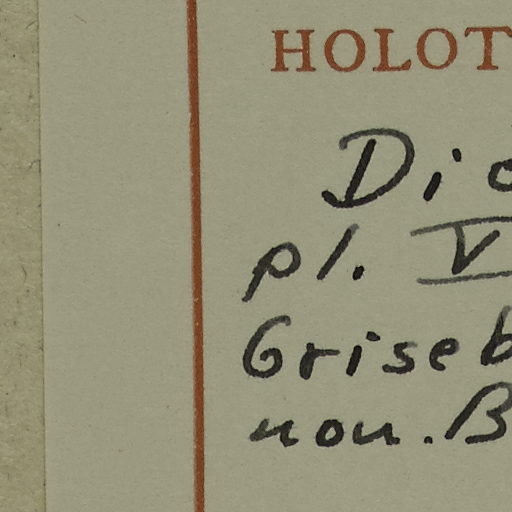 HOLOT
Di
pl. V
Griseb
non. B